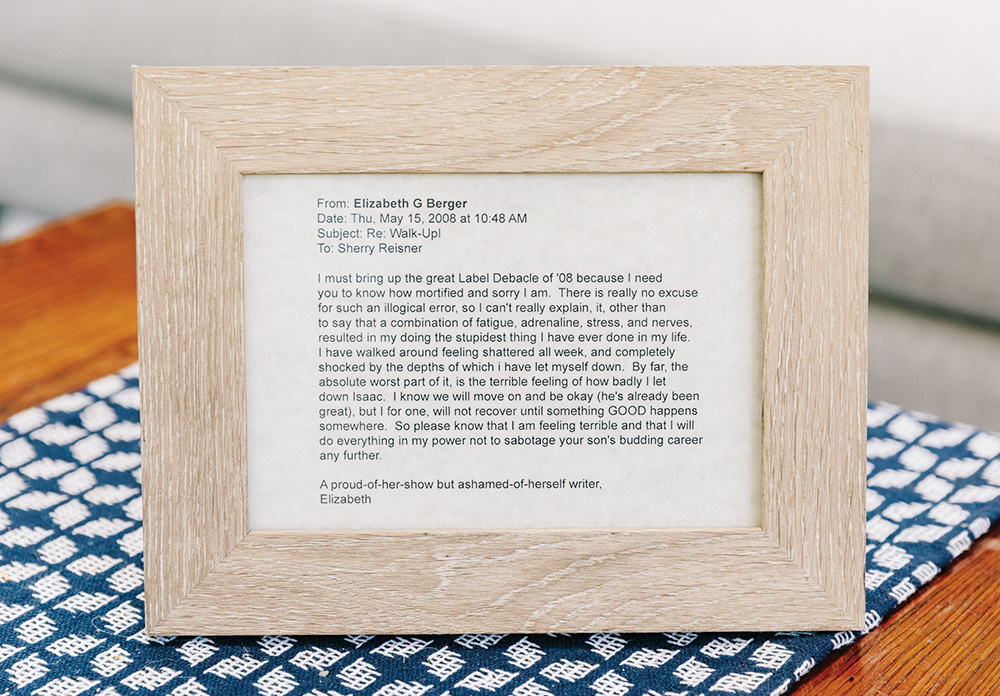 From: Elizabeth G Berger
Date: Thu, May 15, 2008 at 10:48 AM
Subject: Re: Walk-Up!
To: Sherry Reisner
I must bring up the great Label Debacle of '08 because I need
you to know how mortified and sorry I am. There is really no excuse
for such an illogical error, so I can't really explain, it, other than
to say that a combination of fatigue, adrenaline, stress, and nerves,
resulted in my doing the stupidest thing I have ever done in my life.
I have walked around feeling shattered all week, and completely
shocked by the depths of which i have let myself down. By far, the
absolute worst part of it, is the terrible feeling of how badly I let
down Isaac. I know we will move on and be okay (he's already been
great), but I for one, will not recover until something GOOD happens
somewhere. So please know that I am feeling terrible and that I will
do everything in my power not to sabotage your son's budding career
any further.
A proud-of-her-show but ashamed-of-herself writer,
Elizabeth